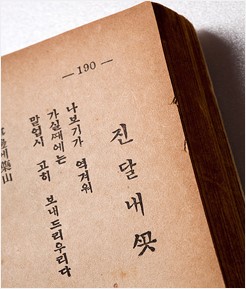 — 190 —
진달내ᄭᅩᆺ
나보기가 역겨워
가실ᄯᅢ에는
말업시 고히 보내드리우리다
에藥山